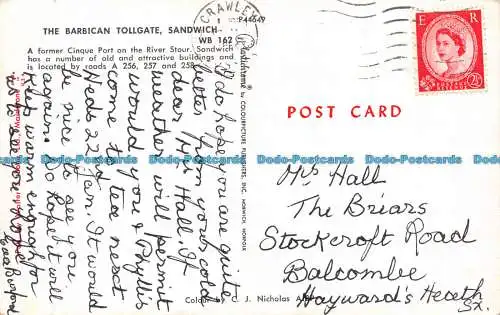 THE BARBICAN TOLLGATE, SANDWICH
WB 162
A former Cinque Port on the River Stour. Sandwich
has a number of old and attractive buildings and
is located by roads A 256, 257 and 258.
CRAWLEY
P44649
E R
POSTAGE REVENUE
2½D
POST CARD
I do hope you are quite
better from your cold
dear Mrs Hall. If
weather will permit
would you & Phyllis
come to tea next
Weds 22 Jan. It would
be nice to see you
again. Do hope it will
keep warm enough for
us to see you
Plastichrome ® by COLOURPICTURE PUBLISHERS, INC. NORWICH, NORFOLK
Mrs Hall
The Briars
Stockcroft Road
Balcombe
Hayward's Heath
Sx.
Colour by C. J. Nicholas
Dodo-Postcards Dodo-Postcards Dodo-Postcards Dodo-Postcards Dodo-Postcards
Dodo-Postcards Dodo-Postcards Dodo-Postcards Dodo-Postcards Dodo-Postcards